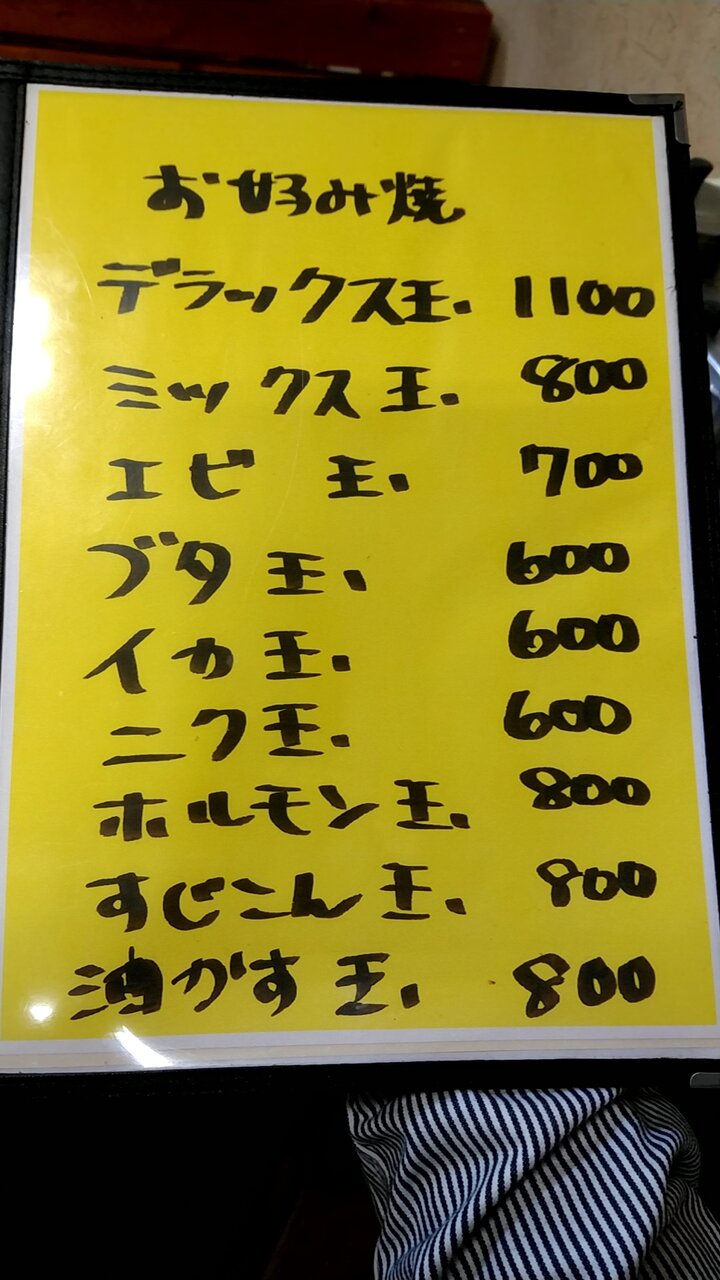 お好み焼
デラックス玉. 1100
ミックス玉. 800
エビ 玉. 700
ブタ玉. 600
イカ玉. 600
ニク玉. 600
ホルモン玉. 800
すじこん玉. 800
油かす玉. 800